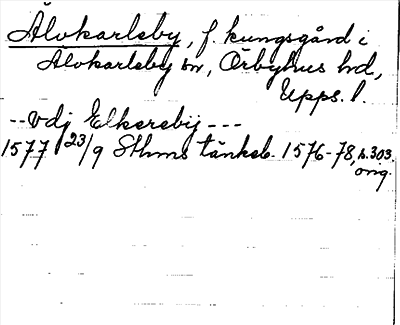 Älvkarleby, f. kungsgård i
Älvkarleby sn, Örbyhus hd,
Upps. l.
-- vdj Elkereby ---
1577 23/9 Sthms tänkeb. 1576-78, s. 303.
orig.